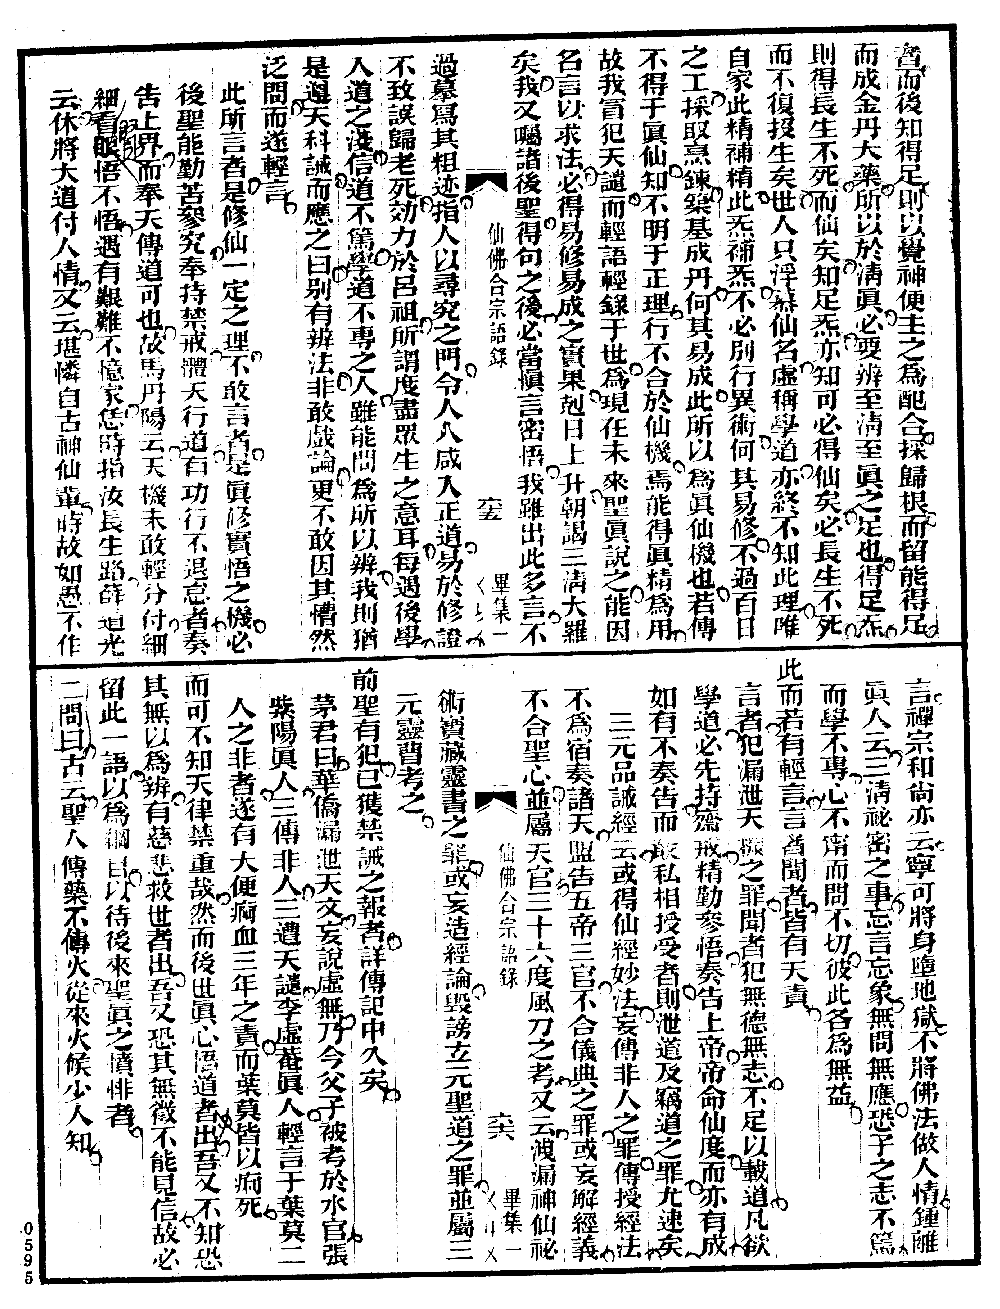 者而後知得足則以覺神便主之為配合採歸根而留能得足
而成金丹大藥所以於清眞必要辨至清至眞之足也得足炁
則得長生不死而仙矣知足炁亦知可必得仙矣必長生不死
而不復投生矣世人只浮慕仙名虛稱學道亦終不知此理唯
自家此精補精此炁補炁不必別行異術何其易修不過百日
之工採取烹鍊築基成丹何其易成此所以為眞仙機也若傳
不得于眞仙知不明于正理行不合於仙機焉能得眞精為用
故我冒犯天譴而輕語輕錄于世為現在未來聖眞說之能因
名言以求法必得易修易成之實果剋日上升朝謁三清大羅
矣我又囑諸後聖得句之後必當愼言密悟我雖出此多言不
仙佛合宗語錄
畢集一
過摹寫其粗迹指人以尋究之門令人人咸入正道易於修證
不致誤歸老死効力於呂祖所謂度盡眾生之意耳每遇後學
人道之淺信道不篤學道不專之人雖能問為所以辨我則猶
是遵天科誡而應之曰別有辨法非敢戲論更不敢因其懵然
泛問而遂輕言
此所言者是修仙一定之理不敢言者是眞修實悟之機必
後聖能勤苦參究奉持禁戒體天行道有功行不退怠者奏
告上界而奉天傳道可也故馬丹陽云天機未敢輕分付細
細看眼悟不悟遇有艱難不憶家恁時指汝長生路薛道光
云休將大道付人情又云堪憐自古神仙輩時故如愚不作
言禪宗和尚亦云寧可將身墮地獄不將佛法做人情鍾離
眞人云三清祕密之事忘言忘象無問無應恐子之志不篤
而學不專心不甯而問不切彼此各為無益
此而若有輕言言者聞者皆有天責
言者犯漏泄天機之罪聞者犯無德無志不足以載道凡欲
學道必先持齋戒精勤參悟奏告上帝帝命仙度而亦有成
如有不奏告而敢私相授受者則泄道及竊道之罪尤速矣
三元品誡經云或得仙經妙法妄傳非人之罪傳授經法
不為宿奏諸天盟告五帝三官不合儀典之罪或妄解經義
不合聖心並屬天官三十六度風刀之考又云洩漏神仙祕
仙佛合宗語錄
畢集一
術寶藏靈書之罪或妄造經論毀謗立元聖道之罪並屬三
元靈曹考之
前聖有犯已獲禁誡之報者詳傳記中久矣
茅君曰華僑漏泄天文妄說虛無乃今父子被考於水官張
紫陽眞人三傳非人三遭天譴李虛菴眞人輕言于葉莫二
人之非者遂有大便痾血三年之責而葉莫皆以痾死
而可不知天律禁重哉然而後世眞心悟道者出吾又不知恐
其無以為辨有慈悲救世者出吾又恐其無徵不能見信故必
留此一語以為綱目以待後來聖眞之憤悱者
二問曰古云聖人傳藥不傳火從來火候少人知
0595